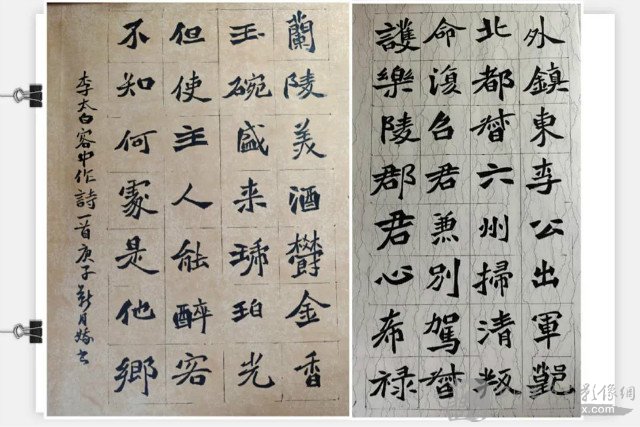 蘭陵美酒欝金香
玉碗盛来琥珀光
但使主人能醉客
不知何處是他鄉
李太白客中作詩一首庚子
外鎮東李公出軍鄴
北都督六州掃清叛
命復召君兼別駕督
護樂陵郡君心希禄
影像網